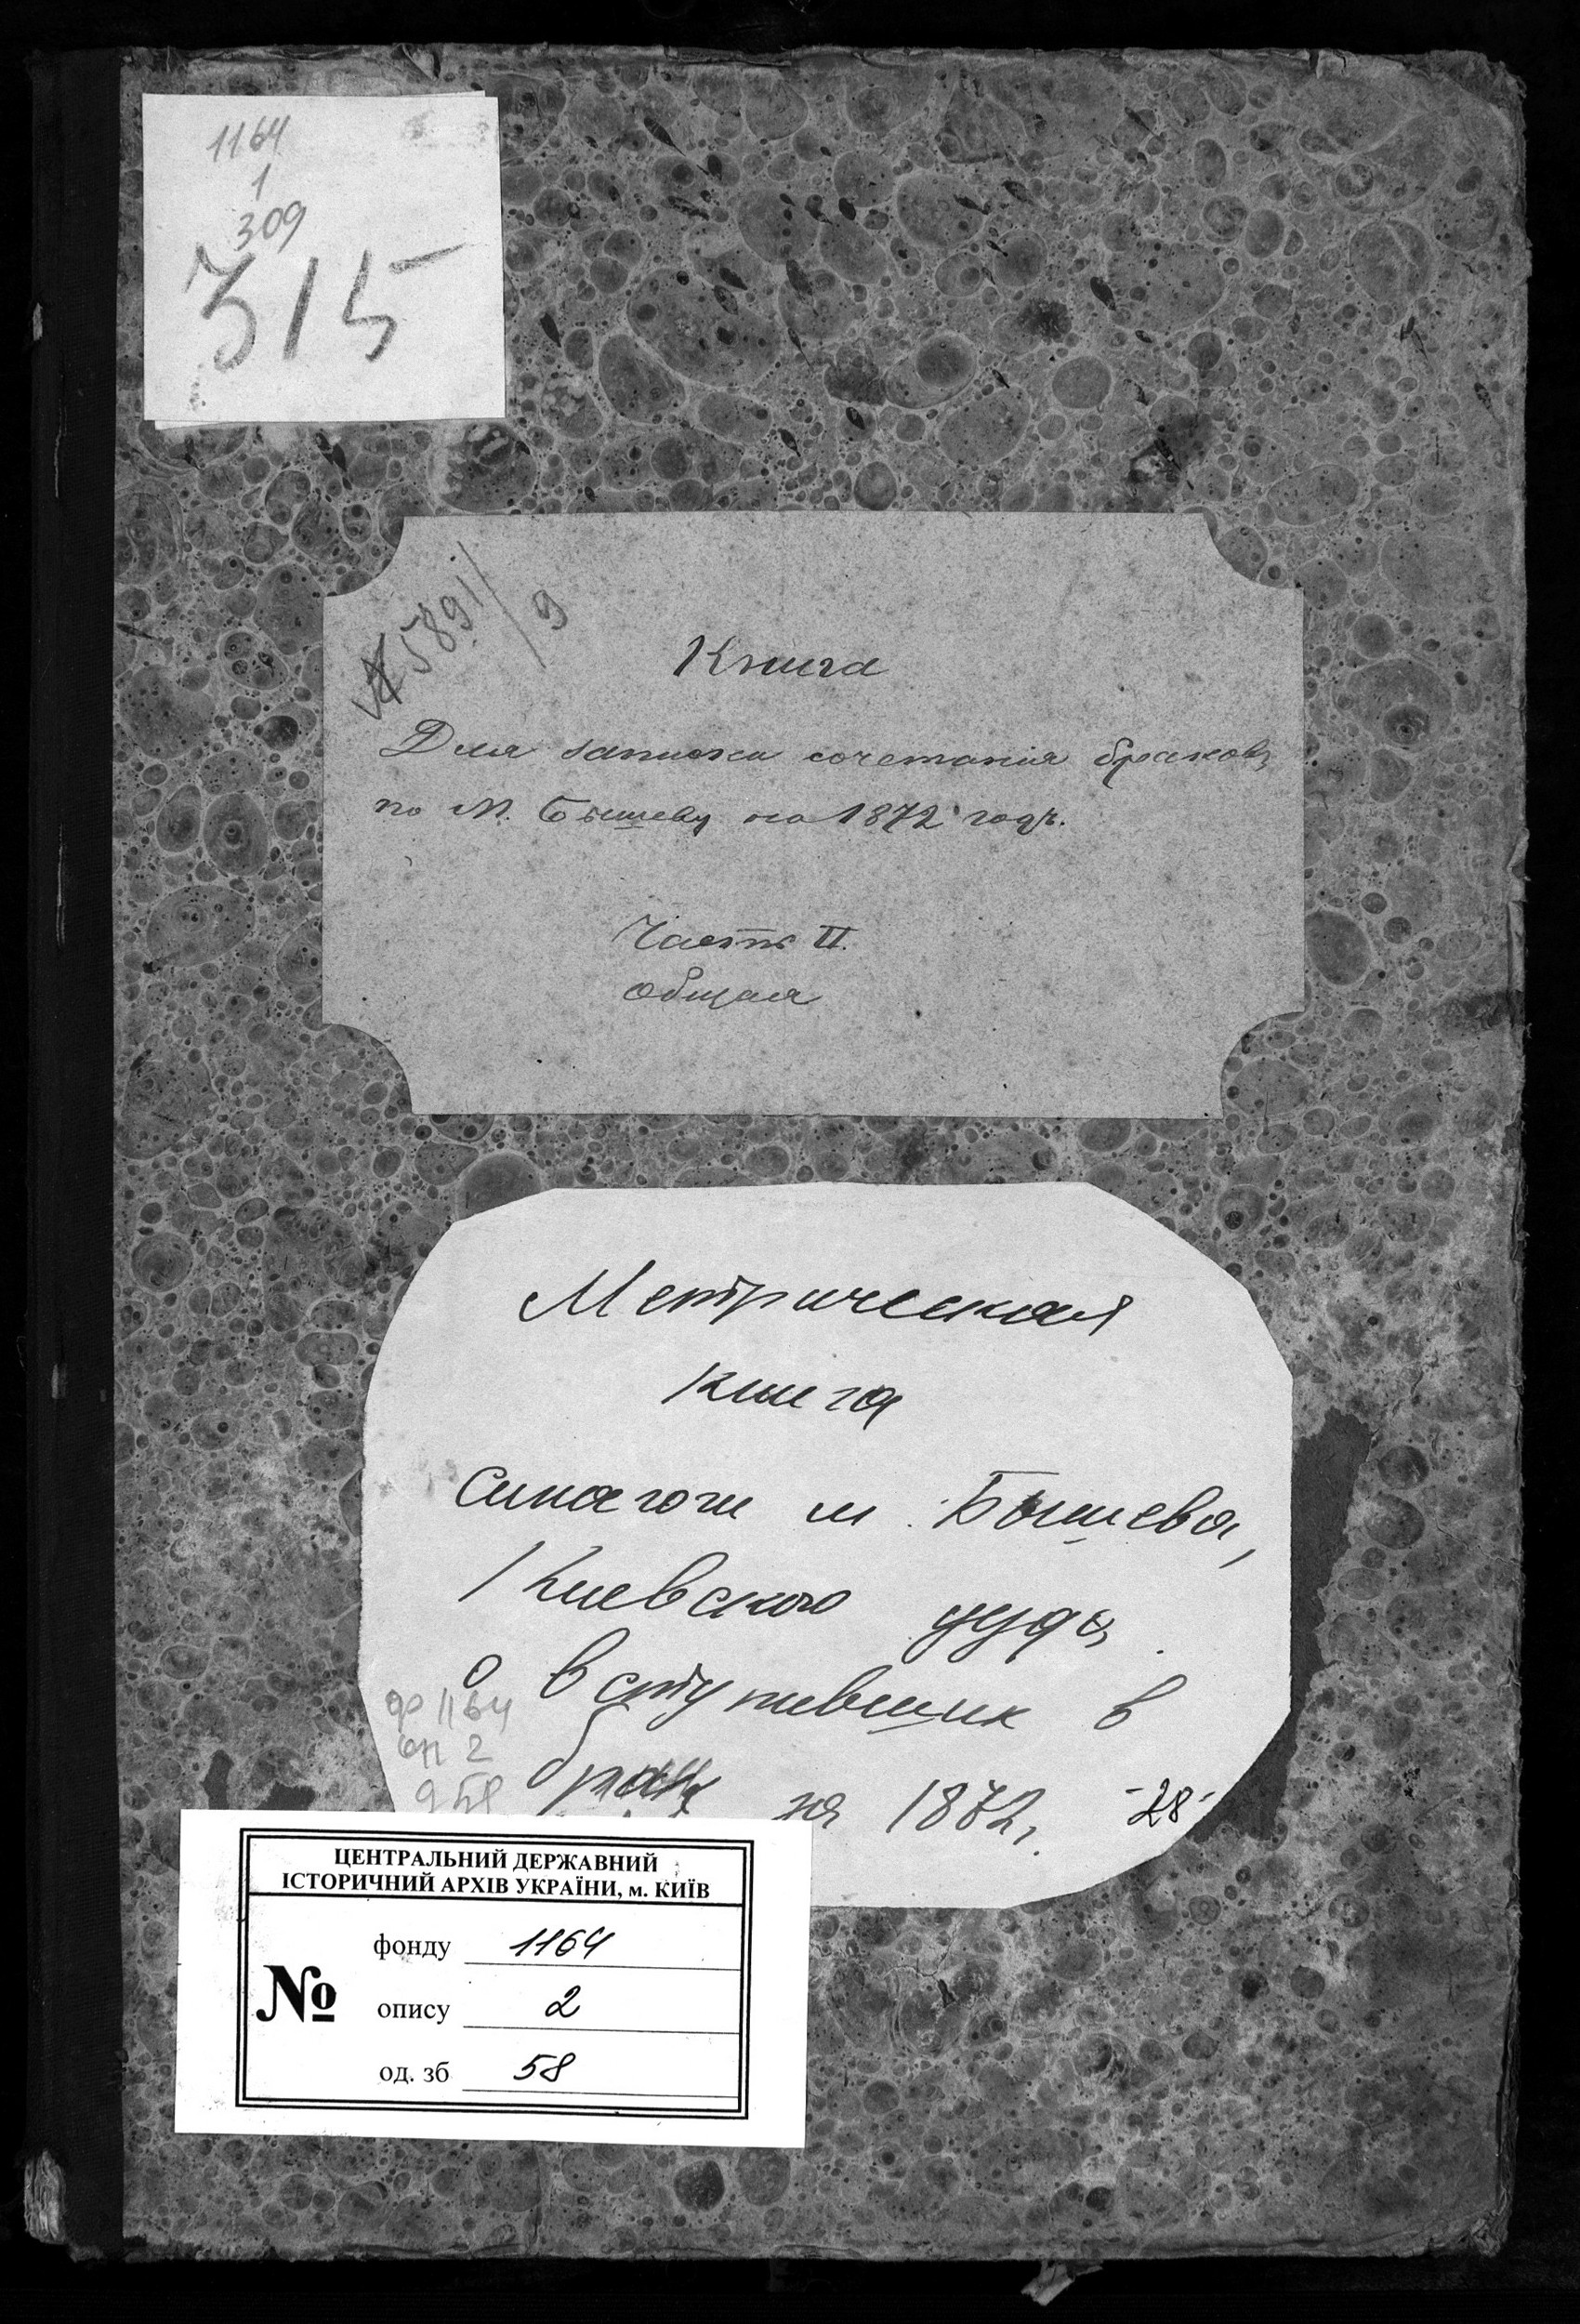 1164
1
309
315
5891/9
Книга
Для записки сочетанія браковъ
по М. Бышеву на 1872 годъ.
Часть II.
Общая
Метрическая
книга
синагоги м. Бышева,
Киевского уезда
о вступивших в
брак за 1872г. -28-
ф 1164
оп 2
ЦЕНТРАЛЬНИЙ ДЕРЖАВНИЙ
ІСТОРИЧНИЙ АРХІВ УКРАЇНИ, м. КИЇВ
фонду 1164
№ опису 2
од. зб 58